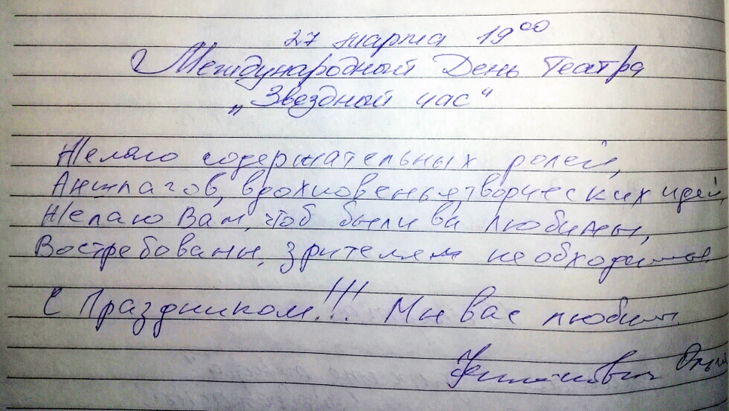 27 марта 19⁰⁰
Международный День Театра
„Звездный час“
Желаю содержательных ролей,
Аншлагов, вдохновенья, творческих идей,
Желаю Вам, чтоб были вы любимы,
Востребованы, зрителям необходимы
С Праздником!!! Мы вас любим